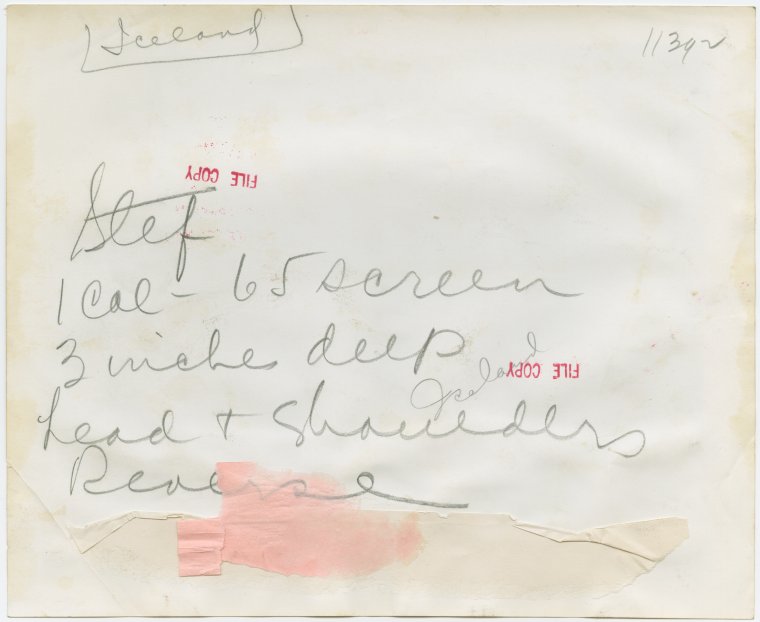 Iceland
1392
FILE COPY
Stef
1 Col - 65 screen
3 inches deep
Iceland
FILE COPY
head + shoulders
Reverse